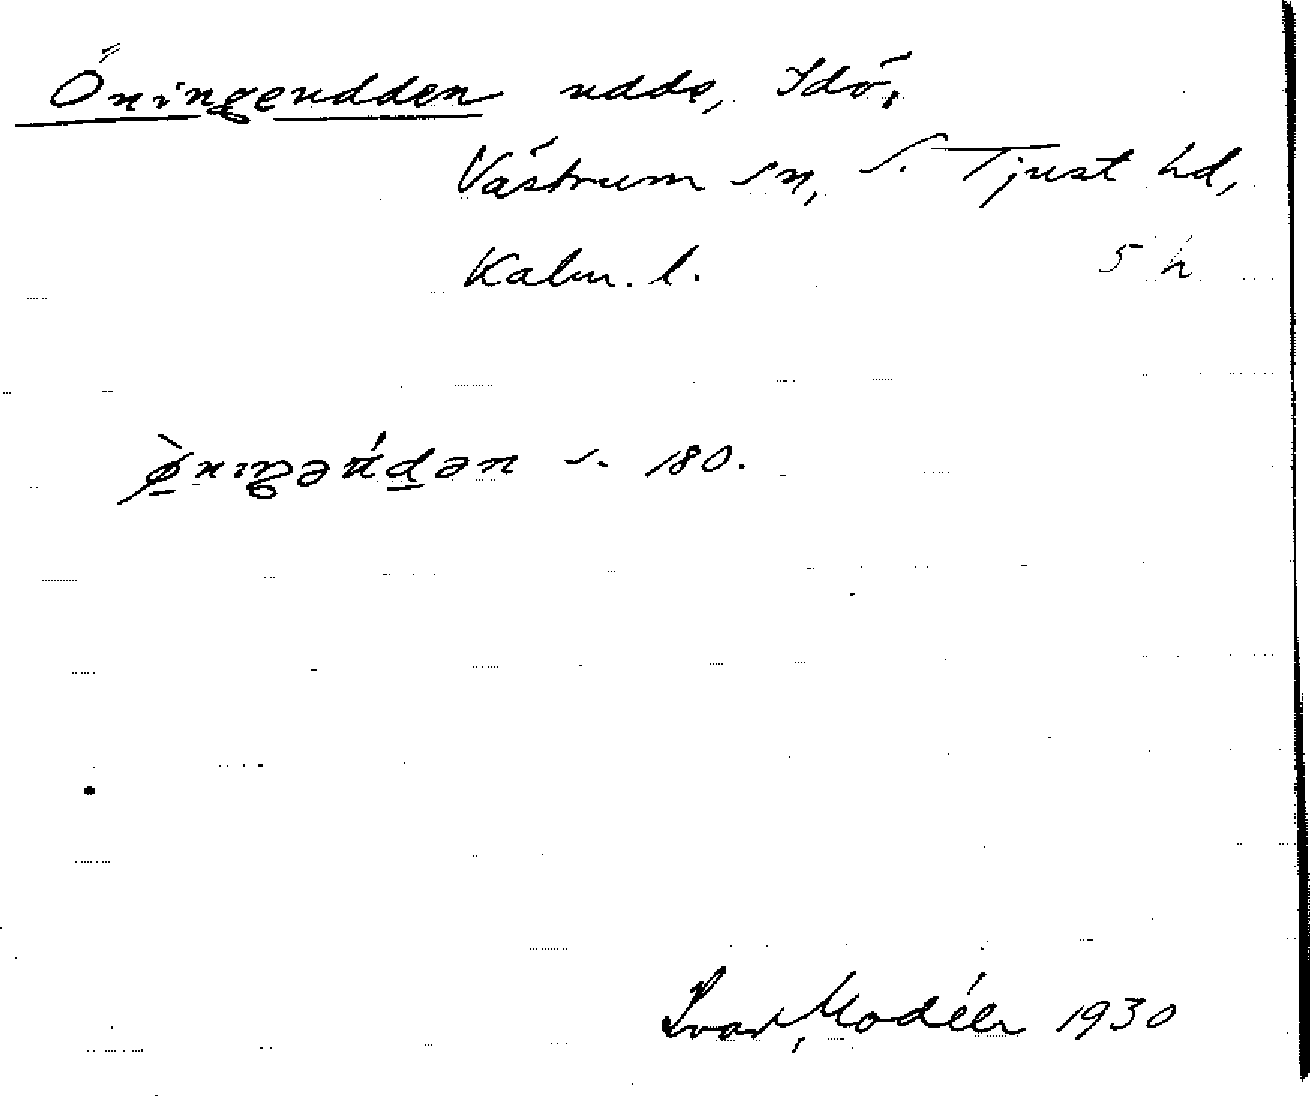 Öningeudden udde, Idö,
Västrum sn, S. Tjust hd,
Kalm. l. 5 h
s. 180.
Ivar Modéer 1930